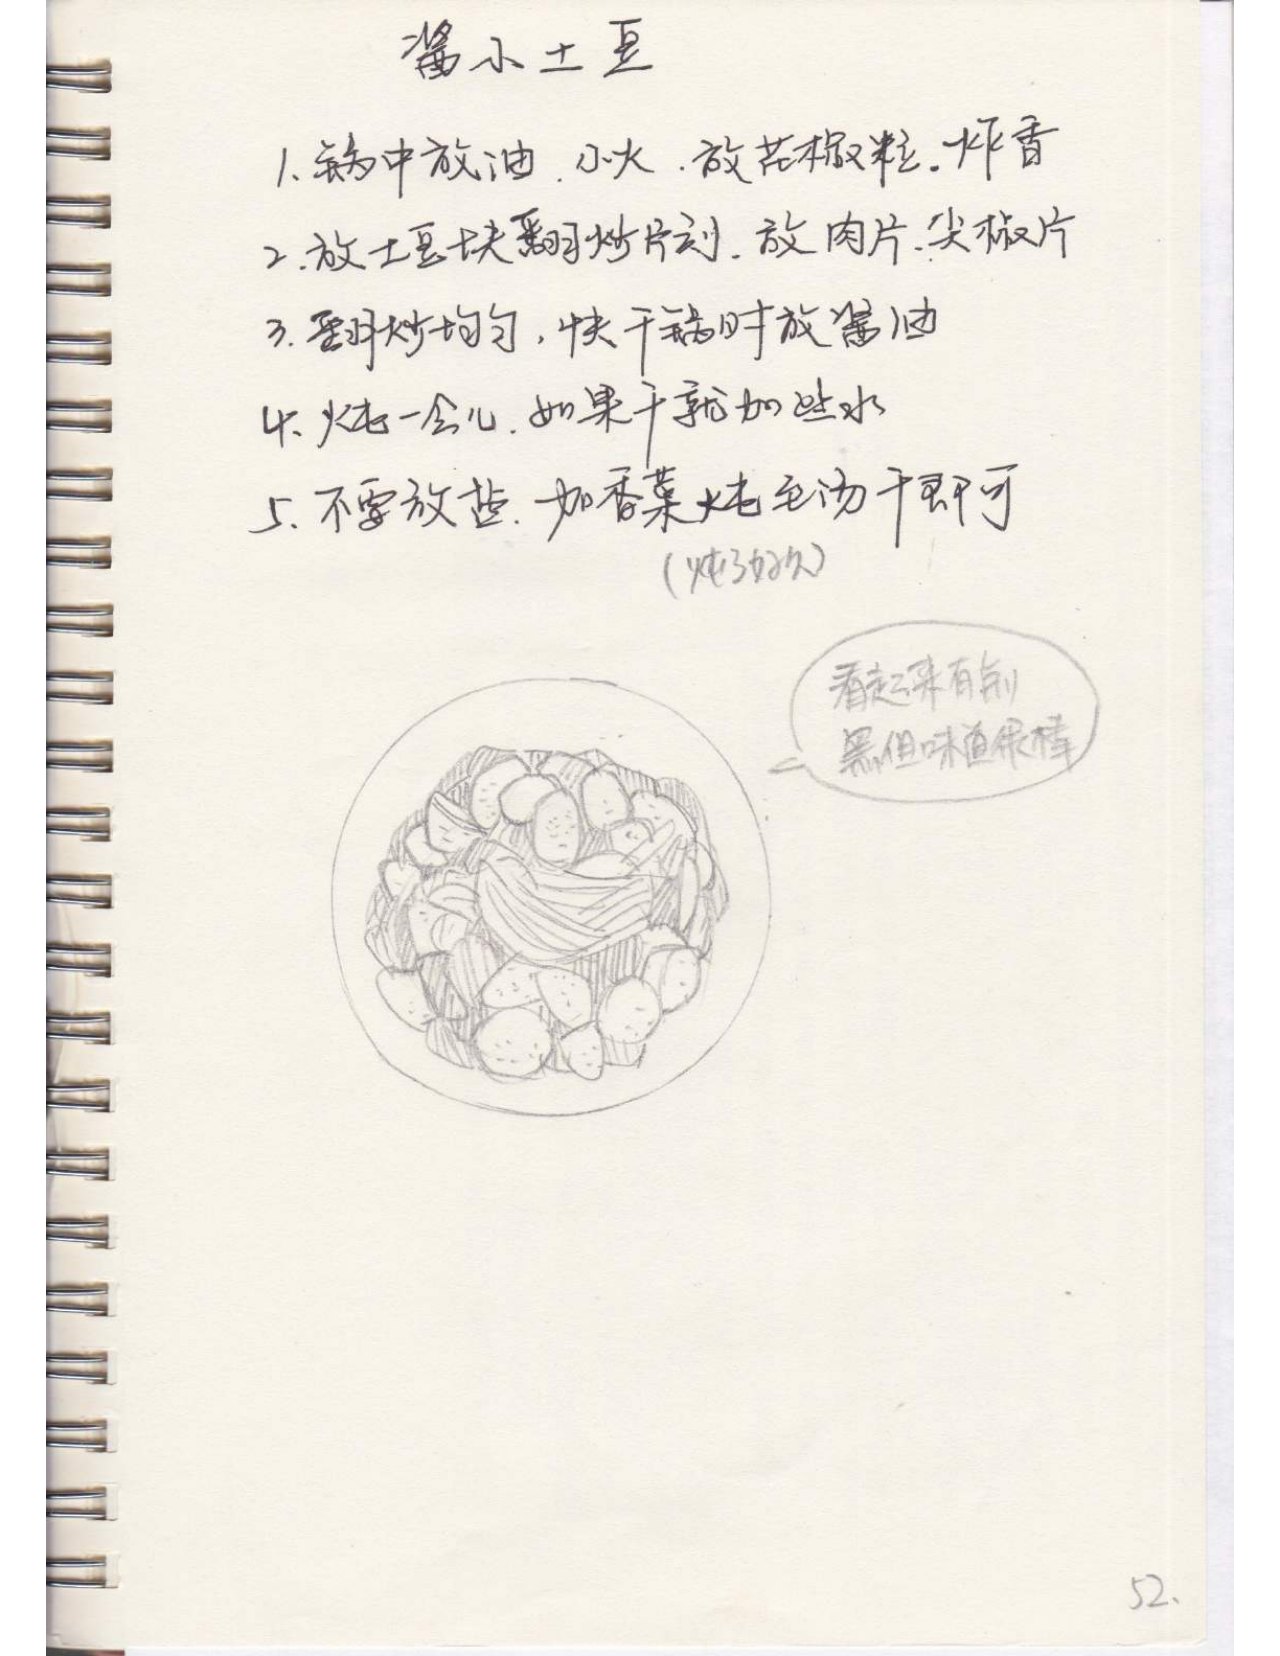 酱小土豆
1. 锅中放油.小火.放花椒粒.炸香
2. 放土豆块翻炒片刻.放肉片.尖椒片
3. 翻炒均匀,快干锅时放酱油
4. 炖一会儿.如果干就加些水
5. 不要放盐.加香菜炖至汤干即可
(炖了好久)
看起来有点
黑但味道很棒
52.